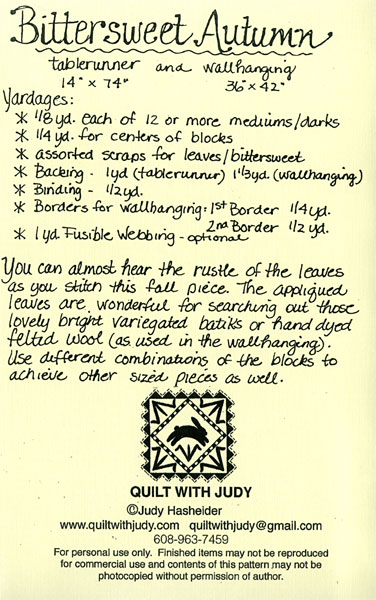 Bittersweet Autumn
tablerunner and wallhanging
14" x 74" 36" x 42"
Yardages:
* 1/8 yd. each of 12 or more mediums/darks
* 1/4 yd. for centers of blocks
* assorted scraps for leaves/bittersweet
* Backing - 1yd (tablerunner) 1 1/3 yd. (wallhanging)
* Binding - 1/2 yd.
* Borders for wallhanging: 1st Border 1/4 yd.
2nd Border 1/2 yd.
* 1 yd. Fusible Webbing - optional
You can almost hear the rustle of the leaves
as you stitch this fall piece. The appliqued
leaves are wonderful for searching out those
lovely bright variegated batiks or hand dyed
felted wool (as used in the wallhanging).
Use different combinations of the blocks to
achieve other sized pieces as well.
QUILT WITH JUDY
©Judy Hasheider
www.quiltwithjudy.com quiltwithjudy@gmail.com
608-963-7459
For personal use only. Finished items may not be reproduced
for commercial use and contents of this pattern may not be
photocopied without permission of author.